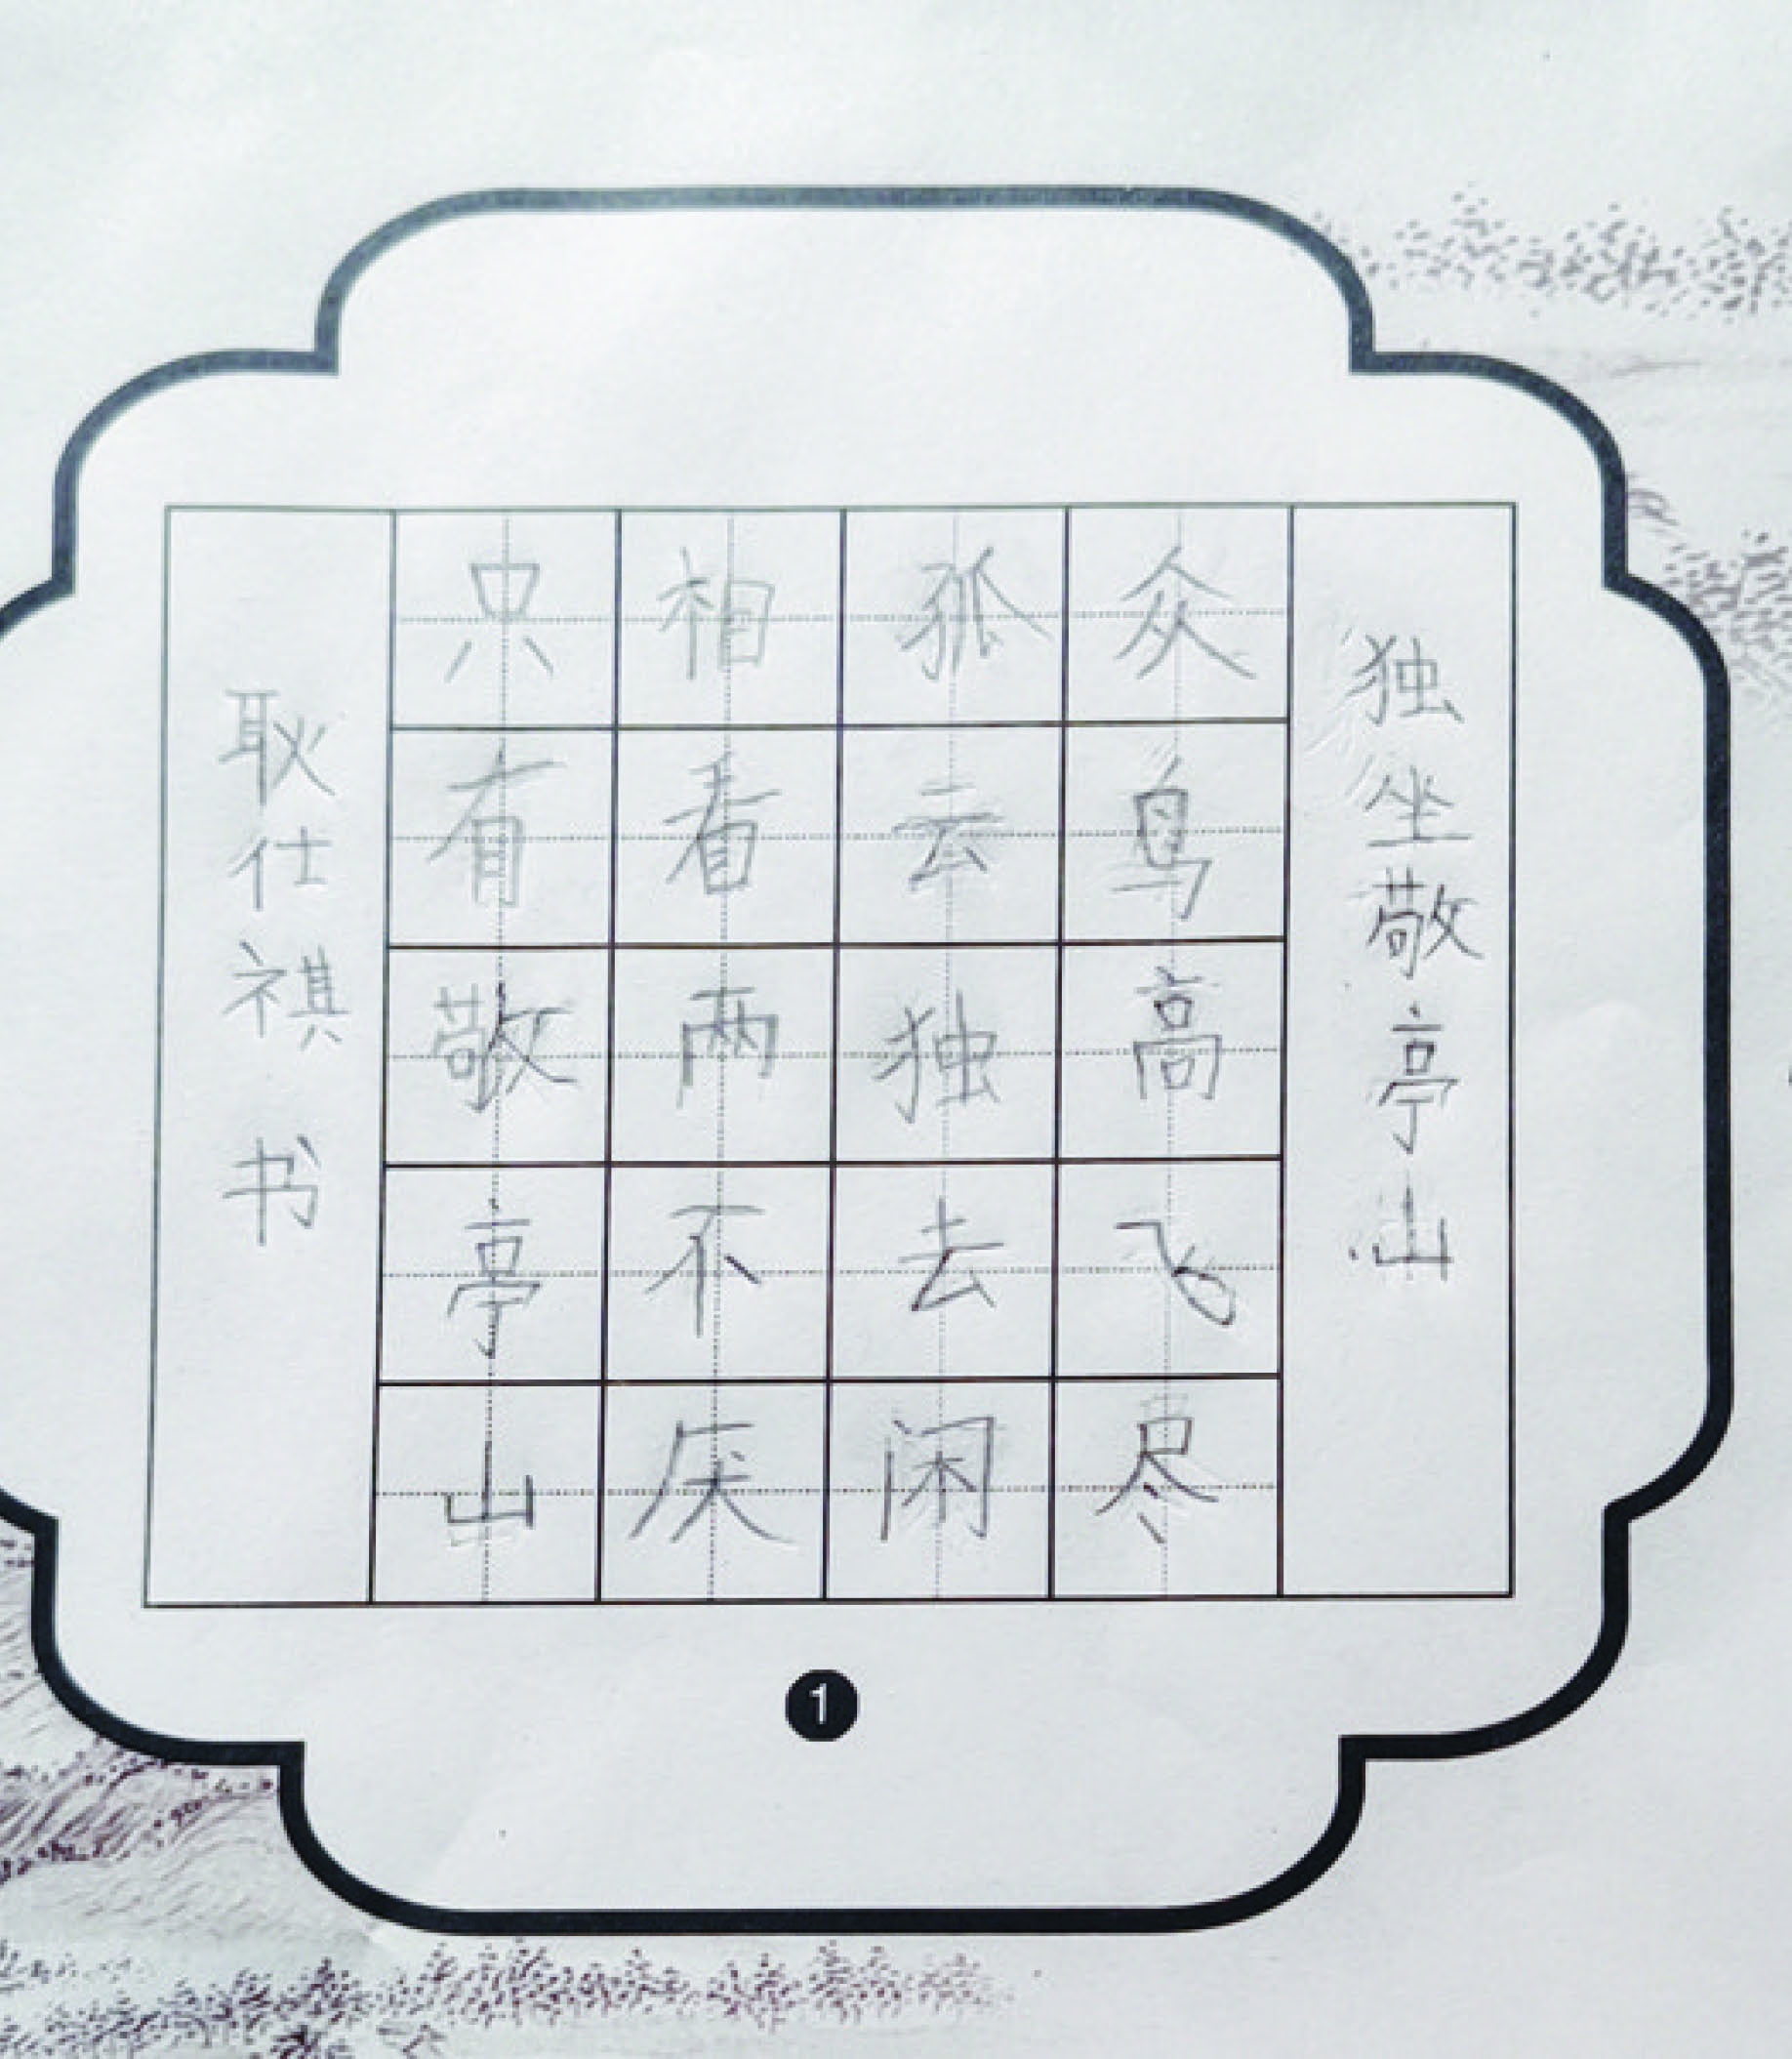 独坐敬亭山
众鸟高飞尽
孤云独去闲
相看两不厌
只有敬亭山
耿仕祺书
1